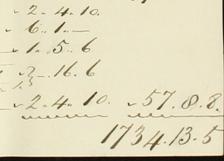 2. 4. 10.
6. 1. —
1. 5. 6
2. 16. 6
2. 4. 10. 57. 8. 8.
1734. 13. 5